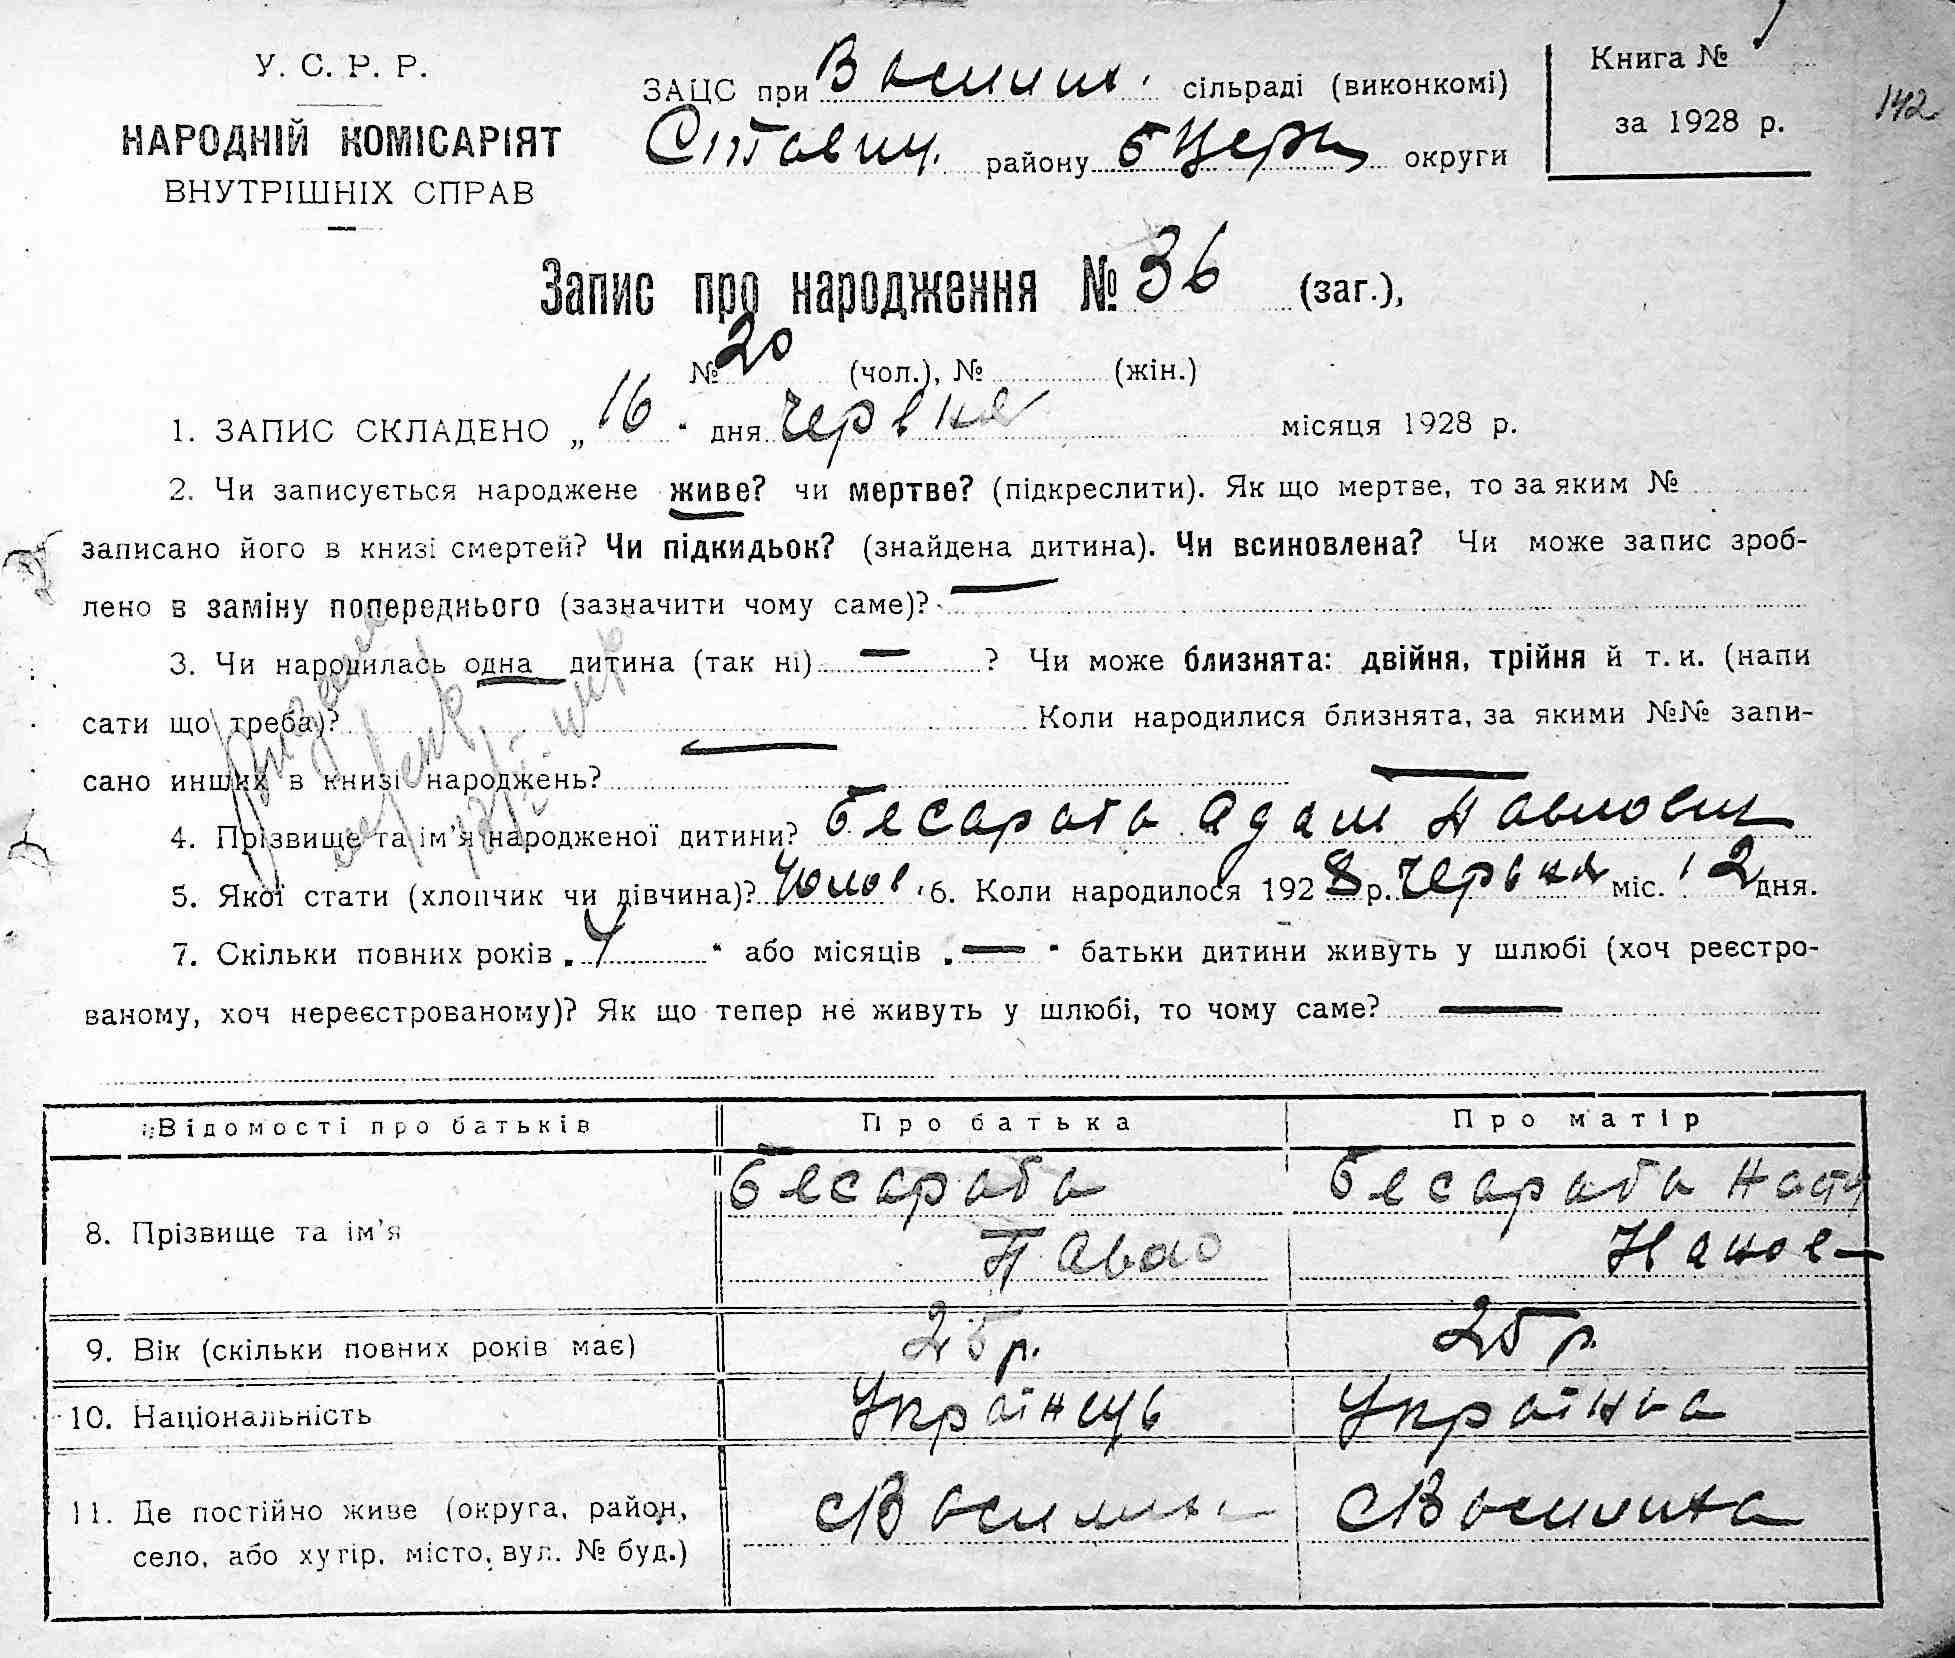 У. С. Р. Р.
НАРОДНІЙ КОМІСАРІЯТ
ВНУТРІШНІХ СПРАВ
ЗАЦС при Василих. сільраді (виконкомі)
Ставищ. району БЦерк округи
Книга №
за 1928 р.
142
Запис про народження № 36 (заг.),
№ 20 (чол.), № (жін.)
1. ЗАПИС СКЛАДЕНО „ 16 " дня Червня місяця 1928 р.
2. Чи записується народжене живе? чи мертве? (підкреслити). Як що мертве, то за яким №
записано його в книзі смертей? Чи підкидьок? (знайдена дитина). Чи всиновлена? Чи може запис зроб-
лено в заміну попереднього (зазначити чому саме)? —
3. Чи народилась одна дитина (так ні) — ? Чи може близнята: двійня, трійня й т. и. (напи
сати що треба)? — Коли народилися близнята, за якими №№ запи-
сано инших в книзі народжень? —
4. Прізвище та ім'я народженої дитини? Бесараба Адам Павлович
5. Якої стати (хлопчик чи дівчина)? Чолов. 6. Коли народилося 1928 р. Червня міс. 12 дня.
7. Скільки повних років „ 4 " або місяців „ — " батьки дитини живуть у шлюбі (хоч реєстро-
ваному, хоч нереєстрованому)? Як що тепер не живуть у шлюбі, то чому саме? —
Відомості про батьків Про батька Про матір
8. Прізвище та ім'я Бесараба Бесараба
Павло
9. Вік (скільки повних років має) 25 р. 25 р.
10. Національність Українець Українка
11. Де постійно живе (округа, район,
село, або хутір, місто, вул. № буд.) с Василиха с Василиха